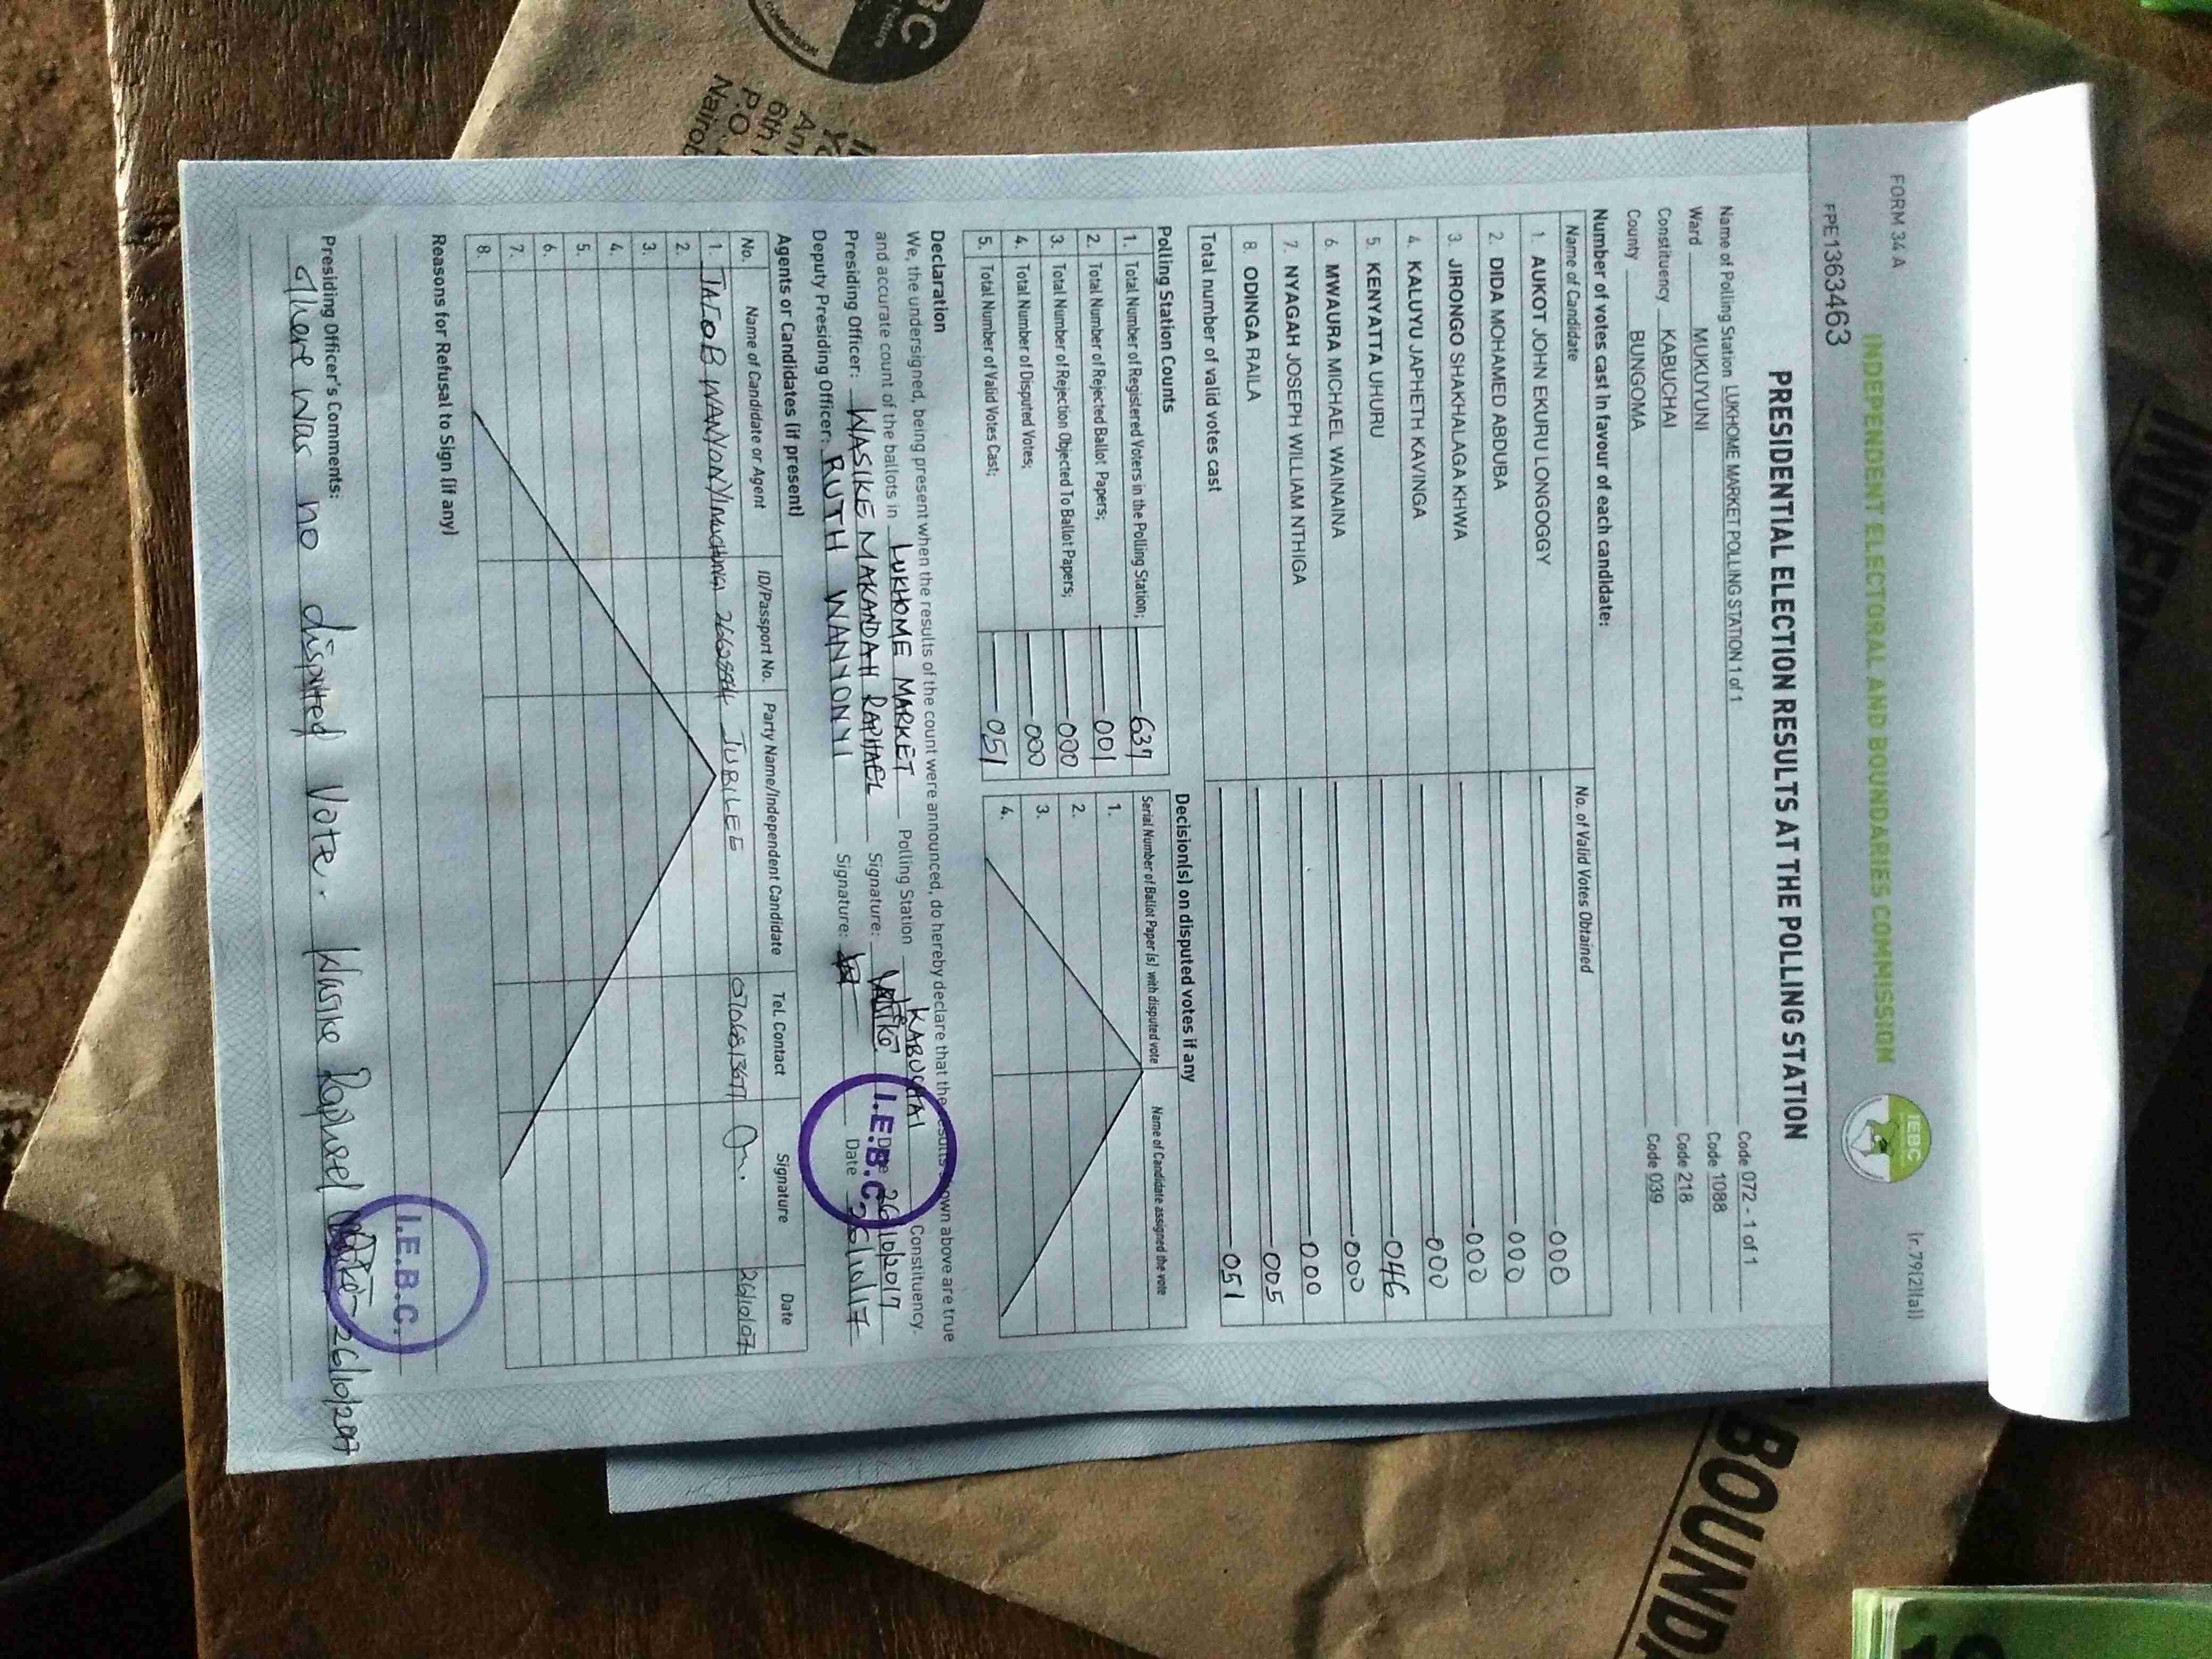 FORM 34 A
(r.79(2)(a))
INDEPENDENT ELECTORAL AND BOUNDARIES COMMISSION
IEBC
FPE1363463
PRESIDENTIAL ELECTION RESULTS AT THE POLLING STATION
Name of Polling Station LUKHOME MARKET POLLING STATION 1 of 1 Code 072 - 1 of 1
Ward MUKUYUNI Code 1088
Constituency KABUCHAI Code 218
County BUNGOMA Code 039
Number of votes cast in favour of each candidate:
Name of Candidate No. of Valid Votes Obtained
1. AUKOT JOHN EKURU LONGOGGY 000
2. DIDA MOHAMED ABDUBA 000
3. JIRONGO SHAKHALAGA KHWA 000
4. KALUYU JAPHETH KAVINGA 000
5. KENYATTA UHURU 046
6. MWAURA MICHAEL WAINAINA 000
7. NYAGAH JOSEPH WILLIAM NTHIGA 000
8. ODINGA RAILA 005
Total number of valid votes cast 051
Polling Station Counts
1. Total Number of Registered Voters in the Polling Station; 637
2. Total Number of Rejected Ballot Papers; 001
3. Total Number of Rejection Objected To Ballot Papers; 000
4. Total Number of Disputed Votes; 000
5. Total Number of Valid Votes Cast; 051
Decision(s) on disputed votes if any
Serial Number of Ballot Paper (s) with disputed vote Name of Candidate assigned the vote
1.
2.
3.
4.
Declaration
We, the undersigned, being present when the results of the count were announced, do hereby declare that the results shown above are true
and accurate count of the ballots in LUKHOME MARKET Polling Station KABUCHAI Constituency.
Presiding Officer: WASIKE MAKANDAH RAPHAEL Signature: Date 26/10/2017
Deputy Presiding Officer: RUTH WANYONYI Signature: Date 26/10/17
I.E.B.C.
Agents or Candidates (if present)
No. Name of Candidate or Agent ID/Passport No. Party Name/Independent Candidate Tel. Contact Signature Date
1. JACOB WANYONYI JUBILEE
2.
3.
4.
5.
6.
7.
8.
Reasons for Refusal to Sign (if any)
I.E.B.C.
Presiding Officer's Comments:
There was no disputed vote. Wasike Raphael 26/10/2017
BC
6th
P.O.
Nairob
BOUND